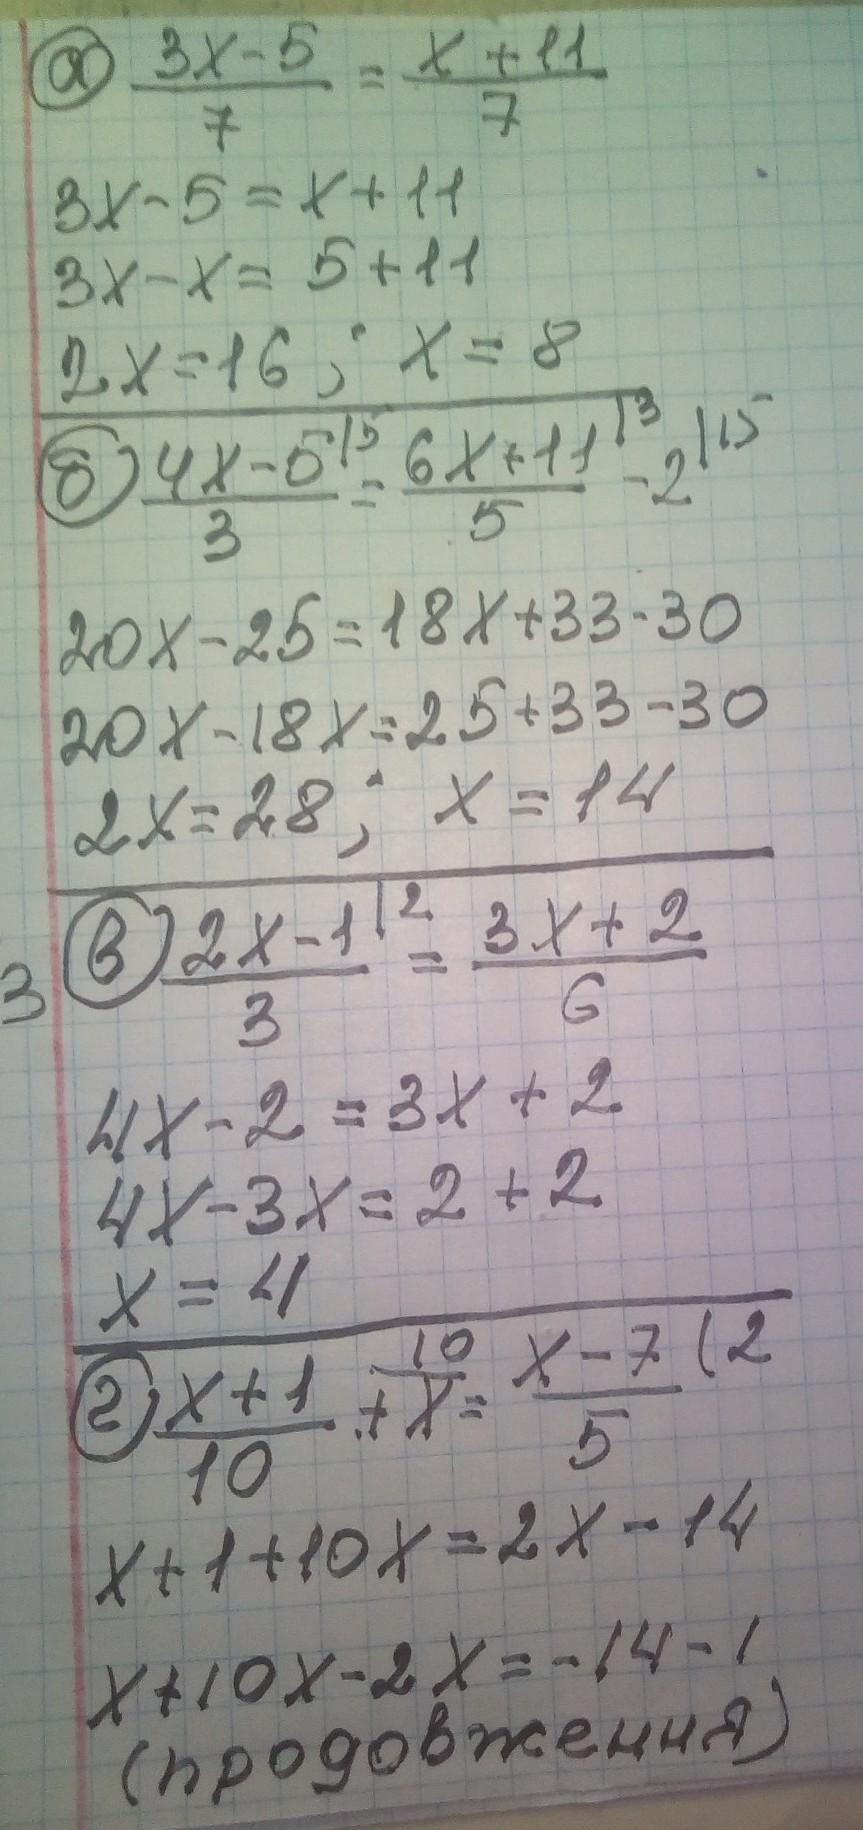 а) (3x-5)/7 = (x+11)/7
3x-5=x+11
3x-x= 5+11
2x=16; x=8
б) (4x-5)/3 |5 = (6x+11)/5 |3 -2 |15
20x-25=18x+33-30
20x-18x=25+33-30
2x=28; x=14
3 в) (2x-1)/3 |2 = (3x+2)/6
4x-2=3x+2
4x-3x=2+2
x=4
г) (x+1)/10 + 10/x = (x-7)/5 (2
x+1+10x=2x-14
x+10x-2x=-14-1
(продовження)